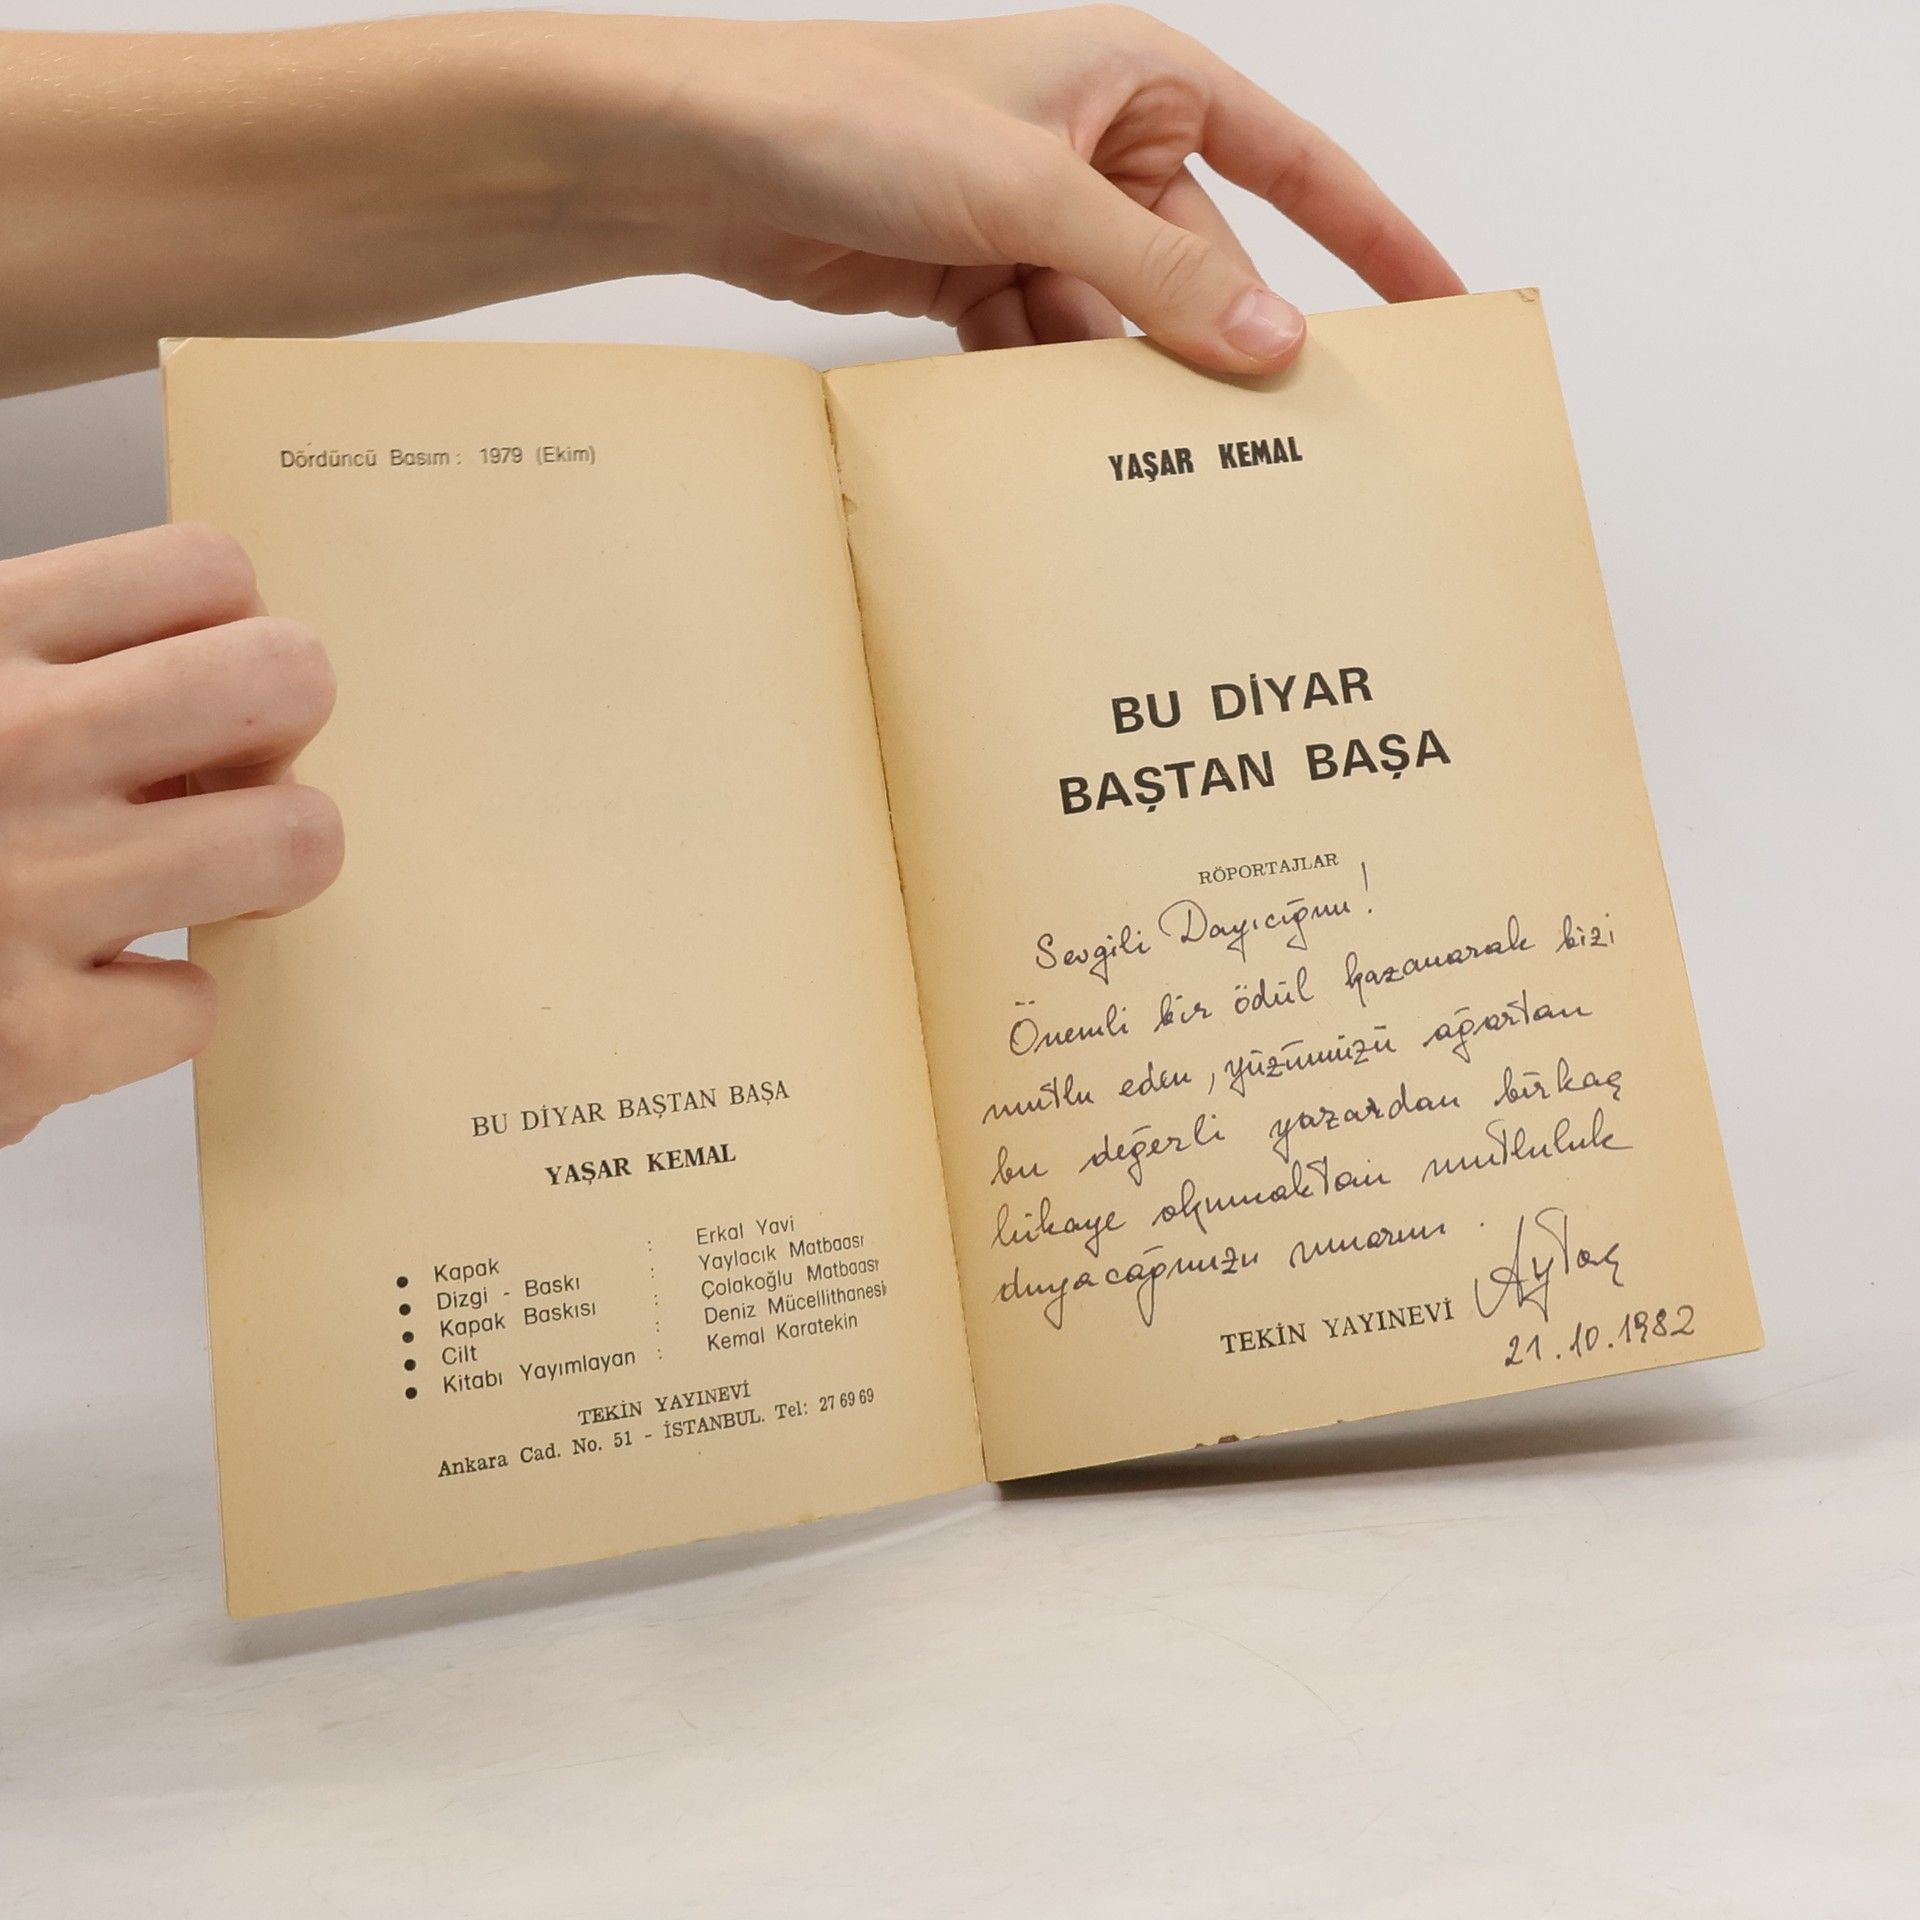 Dördüncü Basım: 1979 (Ekim)
BU DİYAR BAŞTAN BAŞA
YAŞAR KEMAL
● Kapak : Erkal Yavi
● Dizgi - Baskı : Yaylacık Matbaası
● Kapak Baskısı : Çolakoğlu Matbaası
● Cilt : Deniz Mücellithanesi
● Kitabı Yayımlayan : Kemal Karatekin
TEKİN YAYINEVİ
Ankara Cad. No. 51 - İSTANBUL. Tel: 27 69 69
YAŞAR KEMAL
BU DİYAR
BAŞTAN BAŞA
RÖPORTAJLAR
Sevgili Dayıcığım!
Önemli bir ödül kazanarak bizi
mutlu eden, yüzümüzü ağartan
bu değerli yazardan birkaç
hikaye okumaktan mutluluk
duyacağınızı umarım.
Aytaç
TEKİN YAYINEVİ
21.10.1982